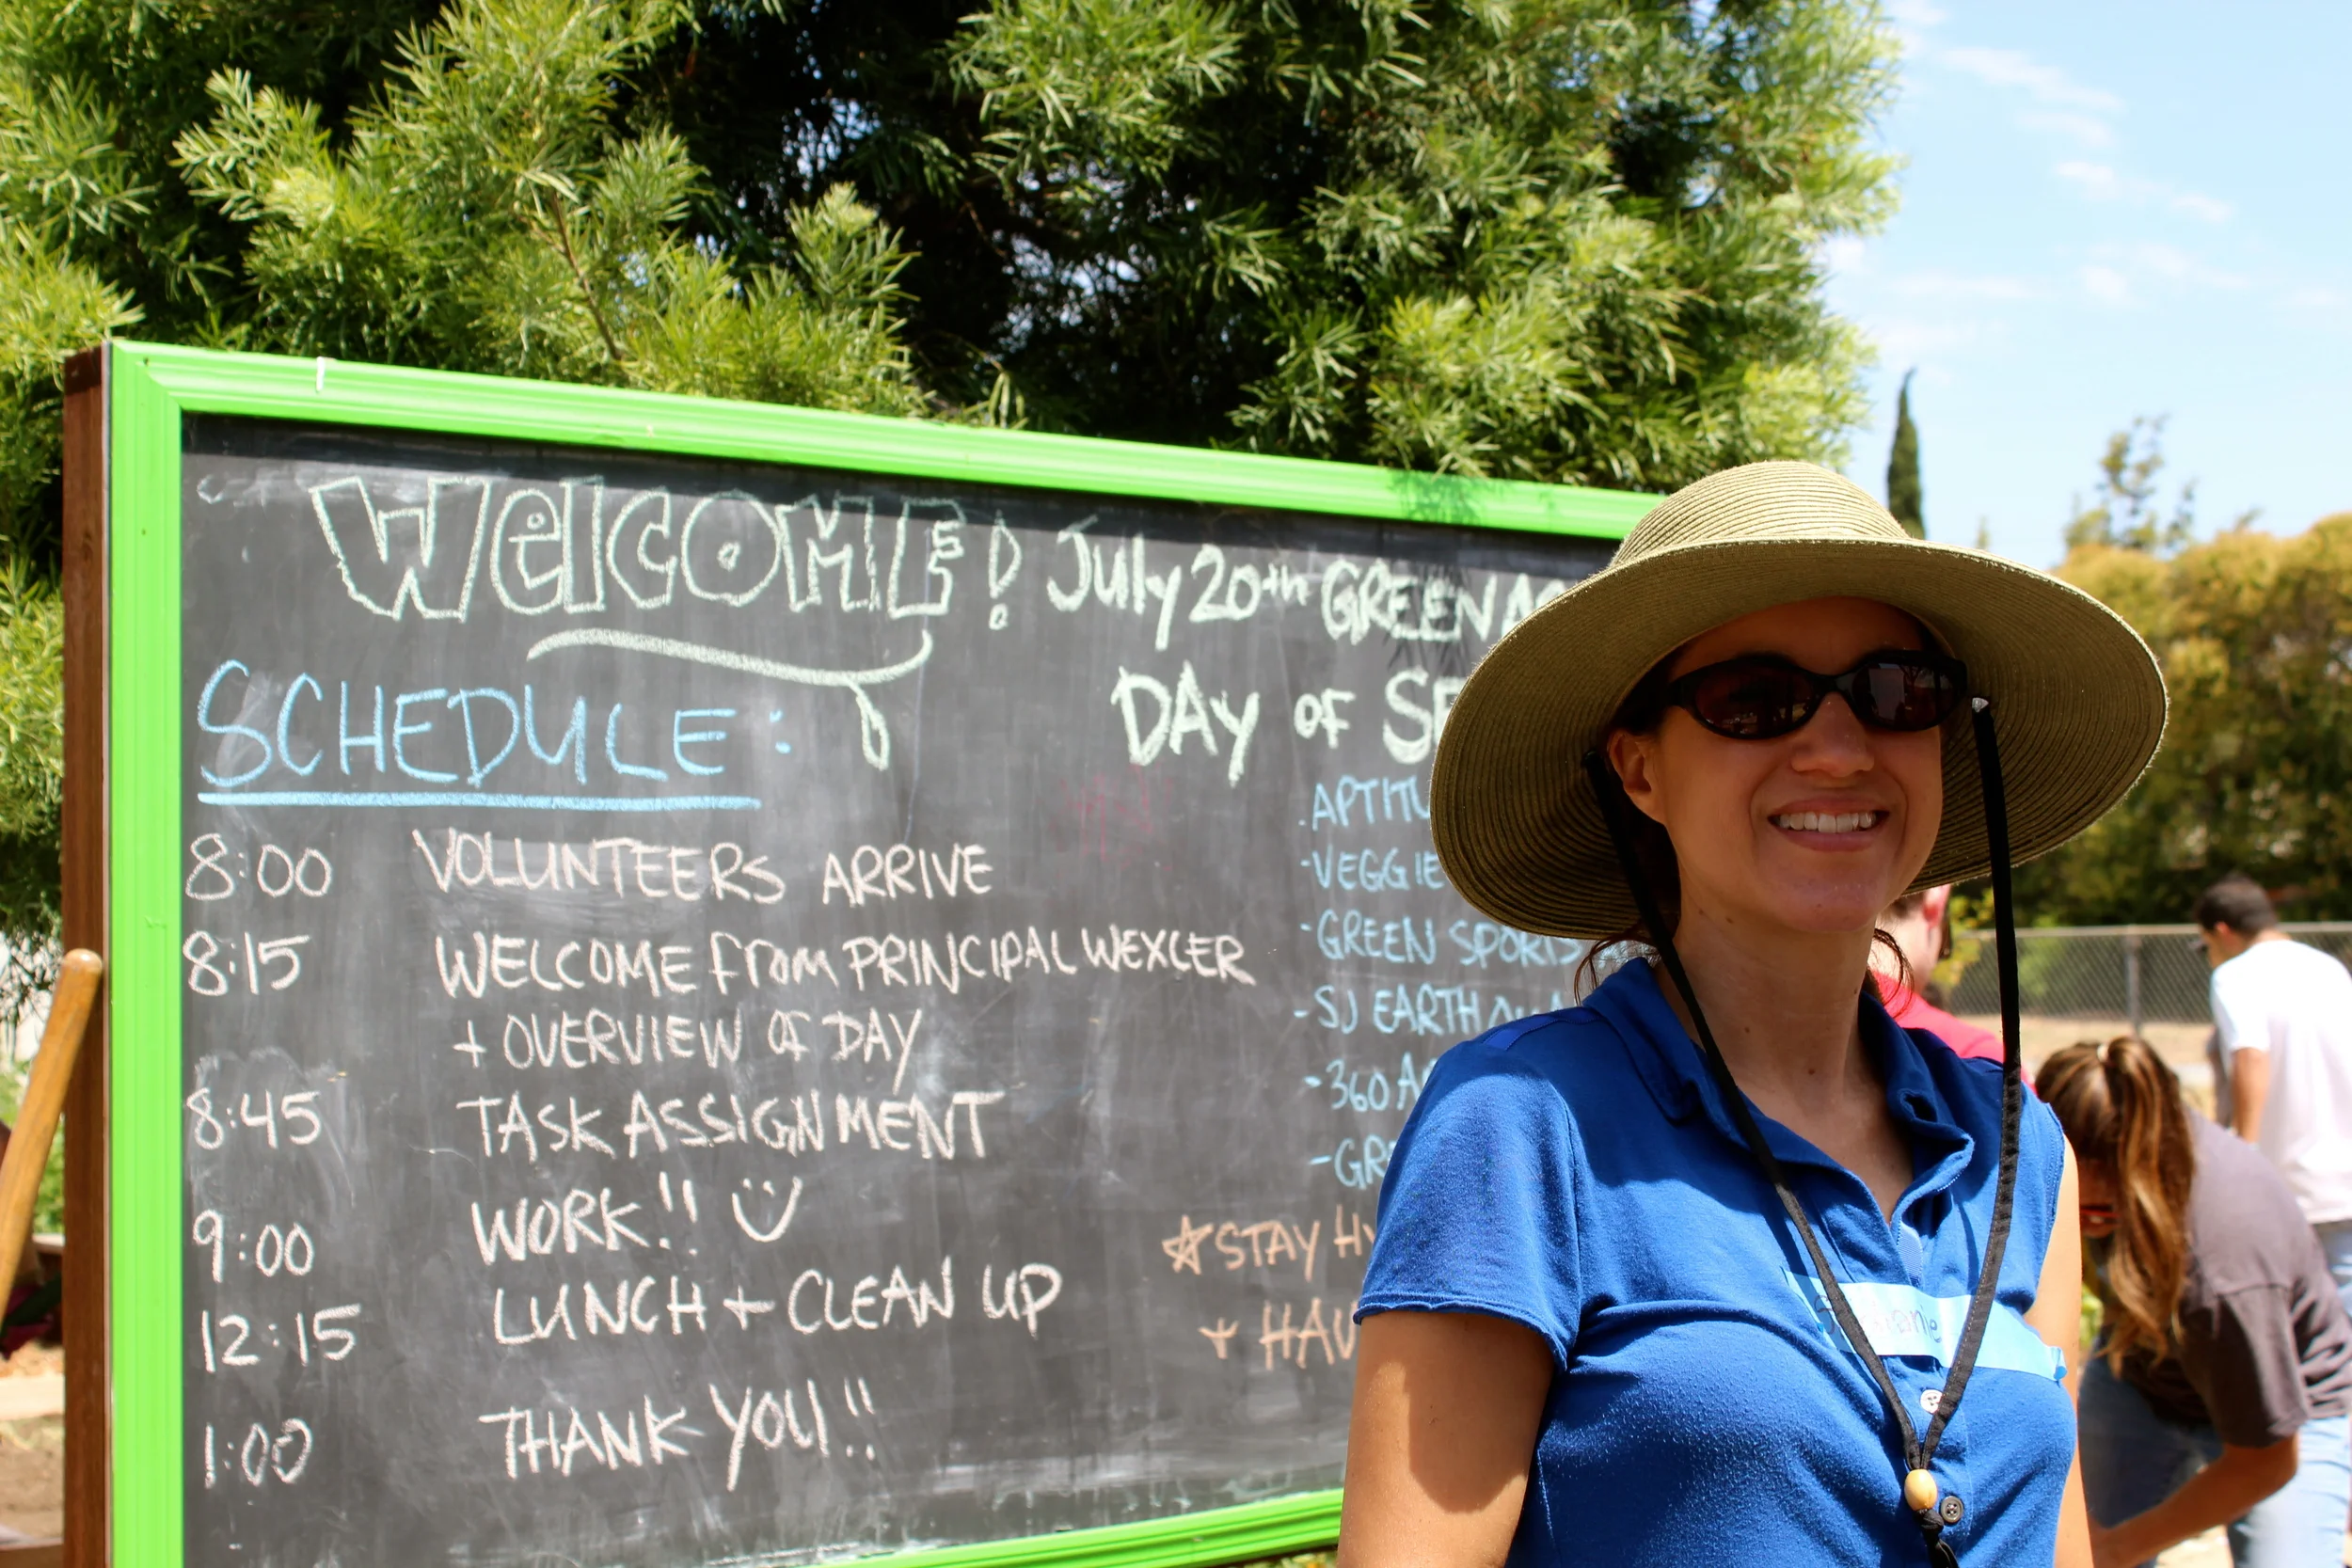 WelcoME! July 20th GREEN
DAY OF
SCHEDULE:
8:00 VOLUNTEERS ARRIVE
8:15 WELCOME From PRINCIPAL WEXLER
+ OVERVIEW OF DAY
8:45 TASK ASSIGNMENT
9:00 WORK!!
12:15 LUNCH + CLEAN UP
1:00 THANK YOU!!
- VEGGIE
- GREEN SPORTS
- SJ EARTH
- 360
STAY
+